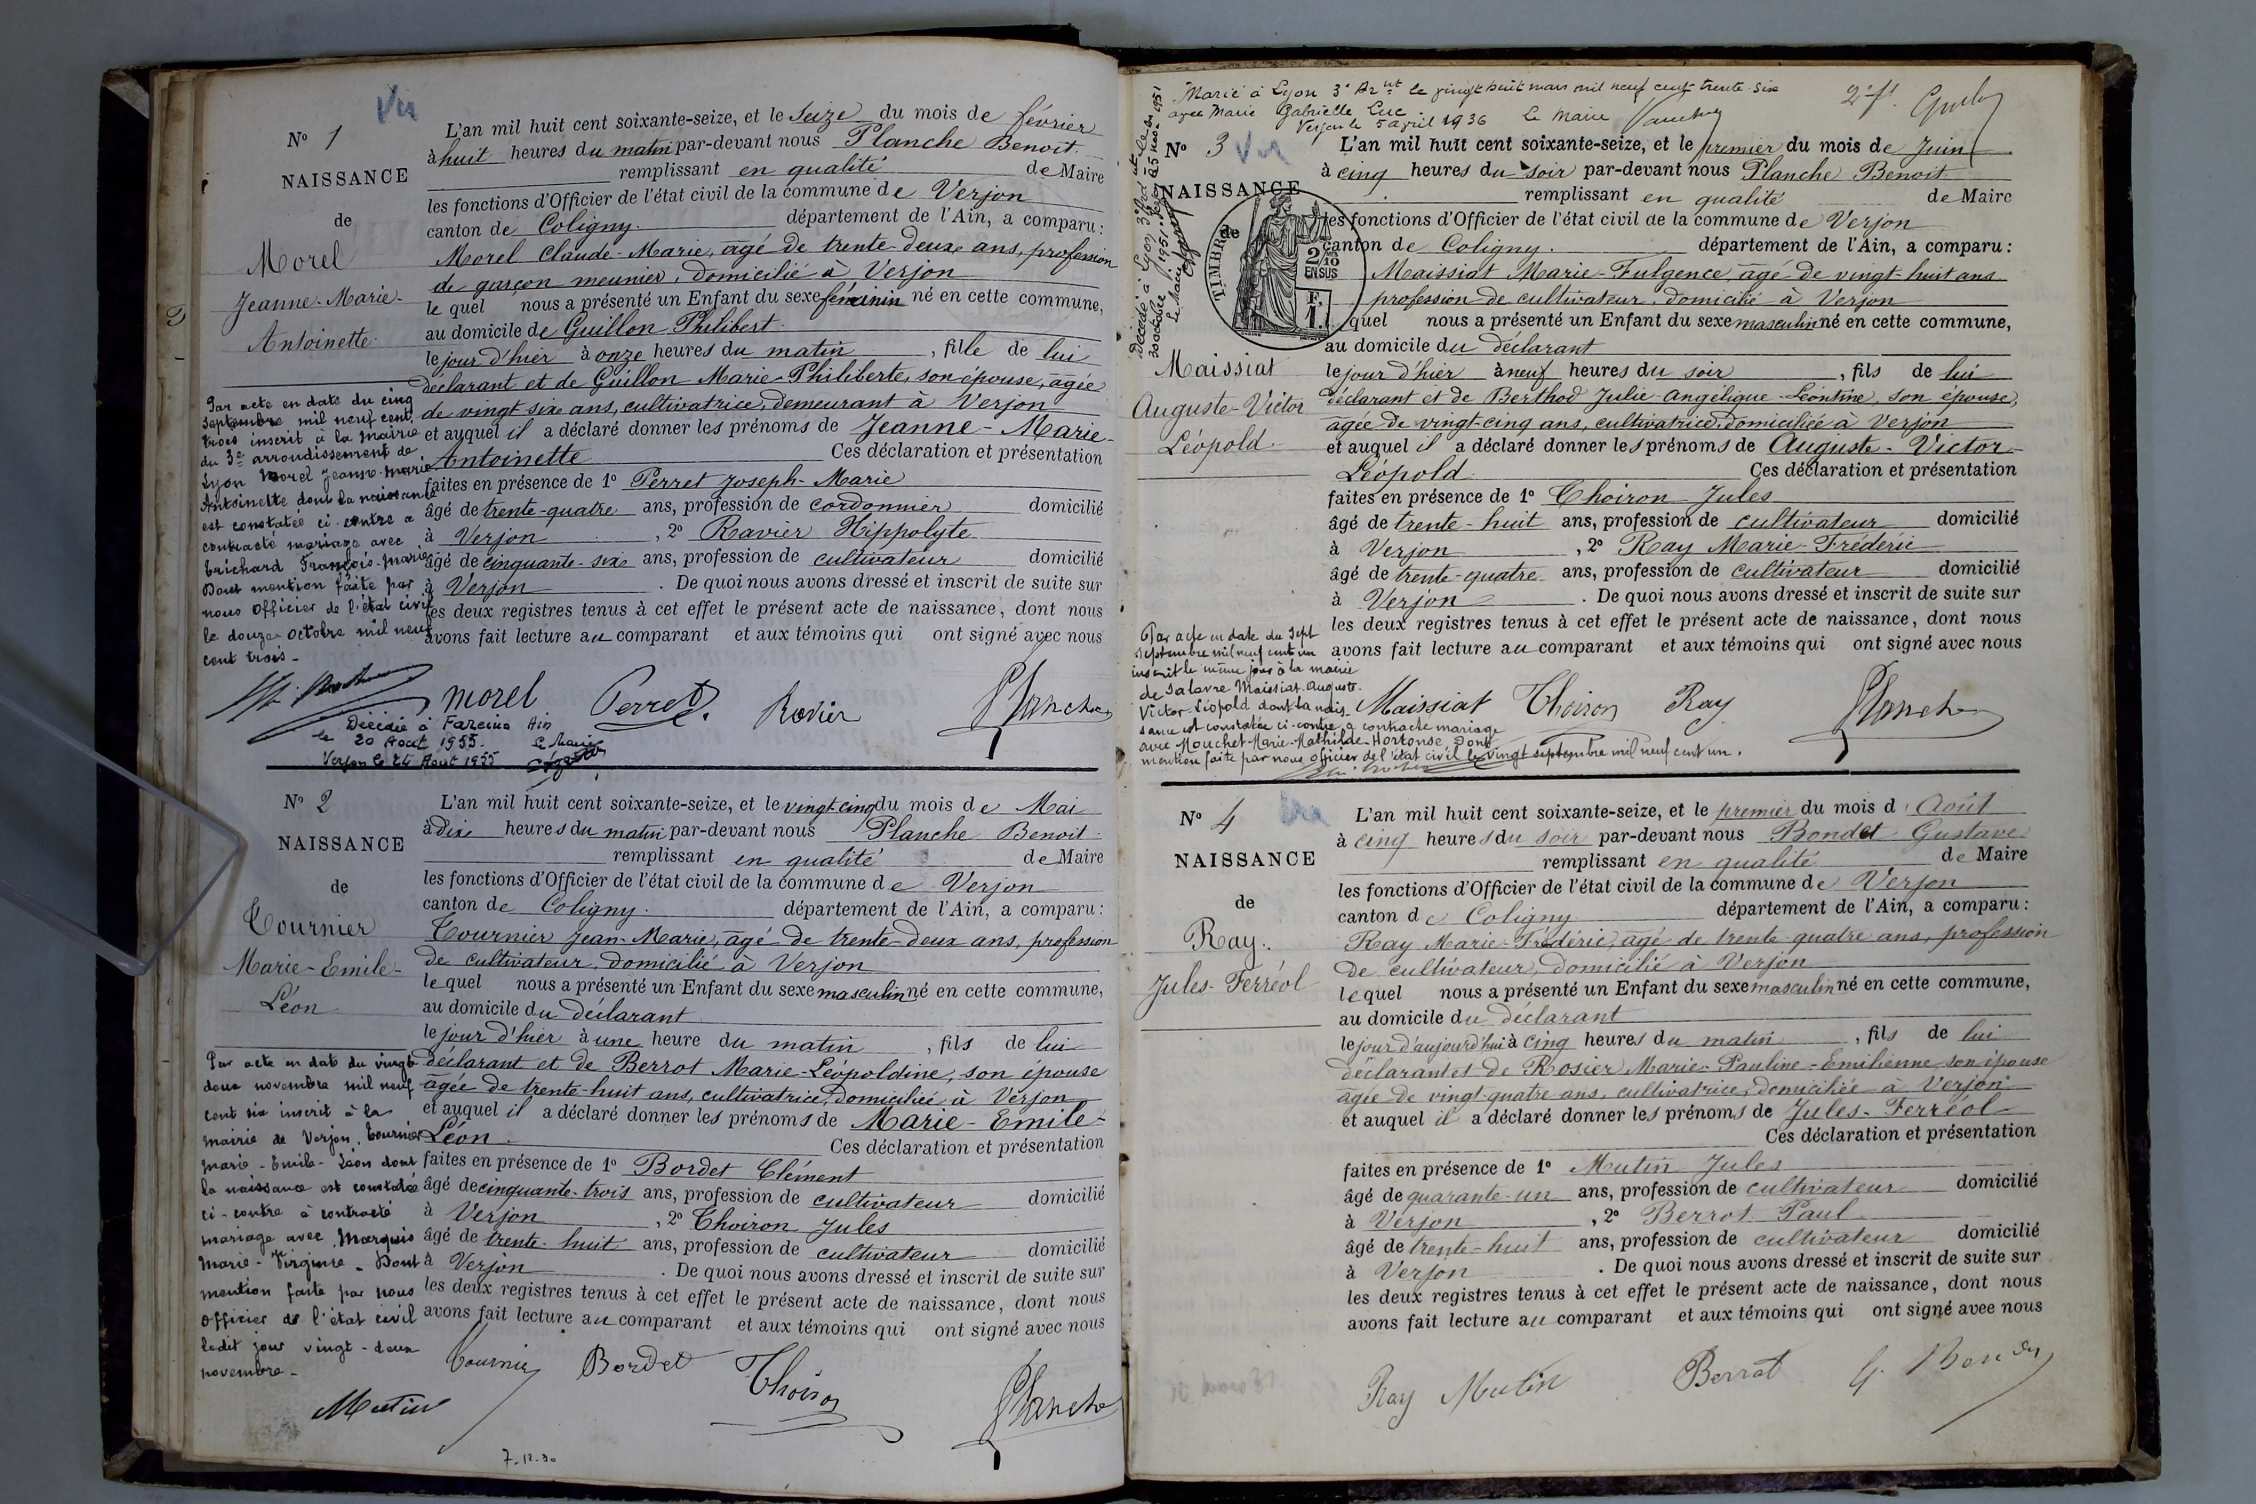 Vu
Nº 1
NAISSANCE
de
Morel
Jeanne-Marie-
Antoinette
L'an mil huit cent soixante-seize, et le seize du mois de février
à huit heures du matin par-devant nous Planche Benoit
remplissant en qualité de Maire
les fonctions d'Officier de l'état civil de la commune de Verjon
canton de Coligny. département de l'Ain, a comparu:
Morel Claude-Marie, âgé de trente-deux ans, profession
de garçon meunier, domicilié à Verjon
le quel nous a présenté un Enfant du sexe féminin né en cette commune,
au domicile de Guillon Philibert
le jour d'hier à onze heures du matin, fille de lui
déclarant et de Guillon Marie-Philiberte, son épouse, âgée
de vingt six ans, cultivatrice, demeurant à Verjon
et auquel il a déclaré donner les prénoms de Jeanne-Marie-
Antoinette Ces déclaration et présentation
faites en présence de 1º Perret Joseph-Marie
âgé de trente-quatre ans, profession de cordonnier domicilié
à Verjon, 2º Ravier Hippolyte
âgé de cinquante-six ans, profession de cultivateur domicilié
à Verjon. De quoi nous avons dressé et inscrit de suite sur
les deux registres tenus à cet effet le présent acte de naissance, dont nous
avons fait lecture au comparant et aux témoins qui ont signé avec nous
Par acte en date du cinq
septembre mil neuf cent
trois inscrit à la mairie
du 3e arrondissement de
Lyon Morel Jeanne-Marie
Antoinette dont la naissance
est constatée ci-contre a
contracté mariage avec
Erichard François-Marie
Dont mention faite par
nous Officier de l'état civil
le douze octobre mil neuf
cent trois-
morel Perret. Ravier Planche
Décédée à Fareins Ain
le 20 Août 1955.
Verjon le 24 Août 1955 Le Maire
Nº 2
NAISSANCE
de
Tournier
Marie-Emile-
Léon
L'an mil huit cent soixante-seize, et le vingt-cinq du mois de Mai
à dix heures du matin par-devant nous Planche Benoit
remplissant en qualité de Maire
les fonctions d'Officier de l'état civil de la commune de Verjon
canton de Coligny. département de l'Ain, a comparu:
Tournier Jean-Marie, âgé de trente-deux ans, profession
de cultivateur, domicilié à Verjon
le quel nous a présenté un Enfant du sexe masculin né en cette commune,
au domicile du déclarant
le jour d'hier à une heure du matin, fils de lui
déclarant et de Berrot Marie-Léopoldine, son épouse
âgée de trente-huit ans, cultivatrice, domiciliée à Verjon
et auquel il a déclaré donner les prénoms de Marie-Emile-
Léon. Ces déclaration et présentation
faites en présence de 1º Bordet Clément
âgé de cinquante-trois ans, profession de cultivateur domicilié
à Verjon, 2º Thoiron Jules
âgé de trente-huit ans, profession de cultivateur domicilié
à Verjon. De quoi nous avons dressé et inscrit de suite sur
les deux registres tenus à cet effet le présent acte de naissance, dont nous
avons fait lecture au comparant et aux témoins qui ont signé avec nous
Par acte en date du vingt
deux novembre mil neuf
cent six inscrit à la
mairie de Verjon, Tournier
Marie-Emile-Léon dont
la naissance est constatée
ci-contre à contracté
mariage avec Marquis
Marie-Virginie - Dont
mention faite par nous
Officier de l'état civil
ledit jour vingt-deux
novembre-
Mutin
Tournier Bordet Thoiron Planche
7-12-30
Marié à Lyon 3e Arrnt le vingt huit mars mil neuf cent trente-six
avec Marie Gabrielle Luc
Verjon le 5 avril 1936 Le Maire
Décédé à Lyon 3e
30 octobre 1951. Verjon le 5 nov 1951
Le Maire
Nº 3 Vu
NAISSANCE
de
TIMBRE
2/10
EN SUS
F.
1.
Maissiat
Auguste-Victor
Léopold
L'an mil huit cent soixante-seize, et le premier du mois de Juin
à cinq heures du soir par-devant nous Planche Benoit
remplissant en qualité de Maire
les fonctions d'Officier de l'état civil de la commune de Verjon
canton de Coligny. département de l'Ain, a comparu:
Maissiat Marie-Fulgence, âgé de vingt-huit ans
profession de cultivateur, domicilié à Verjon
quel nous a présenté un Enfant du sexe masculin né en cette commune,
au domicile du déclarant
le jour d'hier à neuf heures du soir, fils de lui
déclarant et de Berthod Julie-Angélique-Léontine, son épouse,
âgée de vingt-cinq ans, cultivatrice, domiciliée à Verjon
et auquel il a déclaré donner les prénoms de Auguste-Victor-
Léopold Ces déclaration et présentation
faites en présence de 1º Thoiron Jules
âgé de trente-huit ans, profession de cultivateur domicilié
à Verjon, 2º Ray Marie-Fréderic
âgé de trente-quatre ans, profession de cultivateur domicilié
à Verjon. De quoi nous avons dressé et inscrit de suite sur
les deux registres tenus à cet effet le présent acte de naissance, dont nous
avons fait lecture au comparant et aux témoins qui ont signé avec nous
Par acte en date du sept
septembre mil neuf cent un
inscrit le même jour à la mairie
de Salavre Maissiat Auguste-
Victor Léopold dont la nais-
sance est constatée ci-contre a contracté mariage
avec Mouchet Marie-Mathilde-Hortense Dont
mention faite par nous officier de l'état civil le vingt septembre mil neuf cent un.
Maissiat Thoiron Ray Planche
Nº 4
NAISSANCE
de
Ray.
Jules-Ferréol
L'an mil huit cent soixante-seize, et le premier du mois d'Août
à cinq heures du soir par-devant nous Bondet Gustave
remplissant en qualité de Maire
les fonctions d'Officier de l'état civil de la commune de Verjon
canton de Coligny département de l'Ain, a comparu:
Ray Marie-Frédéric, âgé de trente quatre ans, profession
de cultivateur, domicilié à Verjon
lequel nous a présenté un Enfant du sexe masculin né en cette commune,
au domicile du déclarant
le jour d'aujourd'hui à cinq heures du matin, fils de lui
déclarant et de Rosier Marie-Pauline-Emilienne son épouse
âgée de vingt-quatre ans, cultivatrice, domiciliée à Verjon
et auquel il a déclaré donner les prénoms de Jules-Ferréol
Ces déclaration et présentation
faites en présence de 1º Mutin Jules
âgé de quarante-un ans, profession de cultivateur domicilié
à Verjon, 2º Berrot Paul
âgé de trente-huit ans, profession de cultivateur domicilié
à Verjon. De quoi nous avons dressé et inscrit de suite sur
les deux registres tenus à cet effet le présent acte de naissance, dont nous
avons fait lecture au comparant et aux témoins qui ont signé avec nous
Ray Mutin Berrot G. Bondet